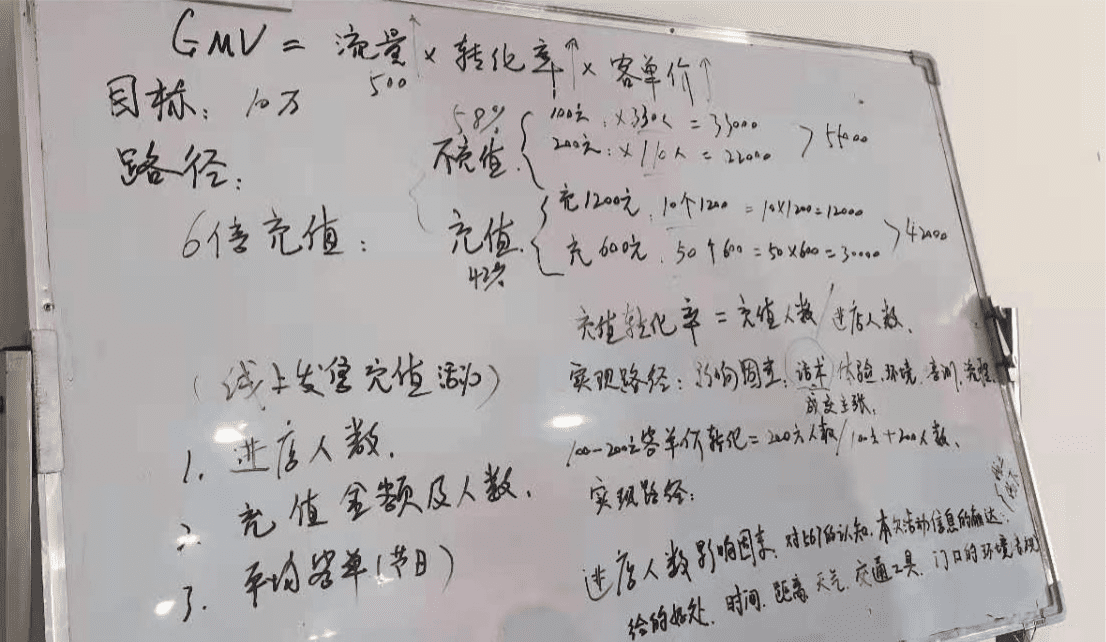 GMV = 流量↑ × 转化率↑ × 客单价↑
500
目标: 10万
58%
不充值 100元: ×330人 = 33000
200元: ×110人 = 22000 > 55000
路径:
6倍充值: 充值 充1200元. 10个1200 = 10×1200=12000
42% 充600元. 50个600=50×600=30000 >42000
充值转化率 = 充值人数/进店人数.
(线上发售充值活动)
实现路径: 影响因素: 话术 体验.环境.培训.流程
成交主张.
1. 进店人数.
100-200元客单价转化=200元人数/100元+200人数.
2. 充值金额及人数.
实现路径:
3. 平均客单(节日)
进店人数影响因素. 的认知.本次活动信息的触达:
给的好处. 时间. 距离.天气.交通工具.门口的环境